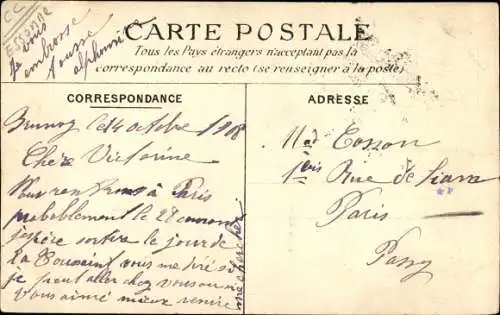 CC
ESSONNE
Je vous
embrasse
tousse
alphonsine
CARTE POSTALE
Tous les Pays étrangers n'acceptant pas la
correspondance au recto (se renseigner à la poste)
CORRESPONDANCE
ADRESSE
Brunoy le 14 octobre 1908
Chere Victorine
Nous rentrons à Paris
probablement le 28 courant
j'espère sortire le jour de
La Toussaint vous me diré si
je peut aller chez vous ou si
Vous aimé mieux venire
me chercher
Mad Cosson
1bis Rue de Siam
Paris
Passy